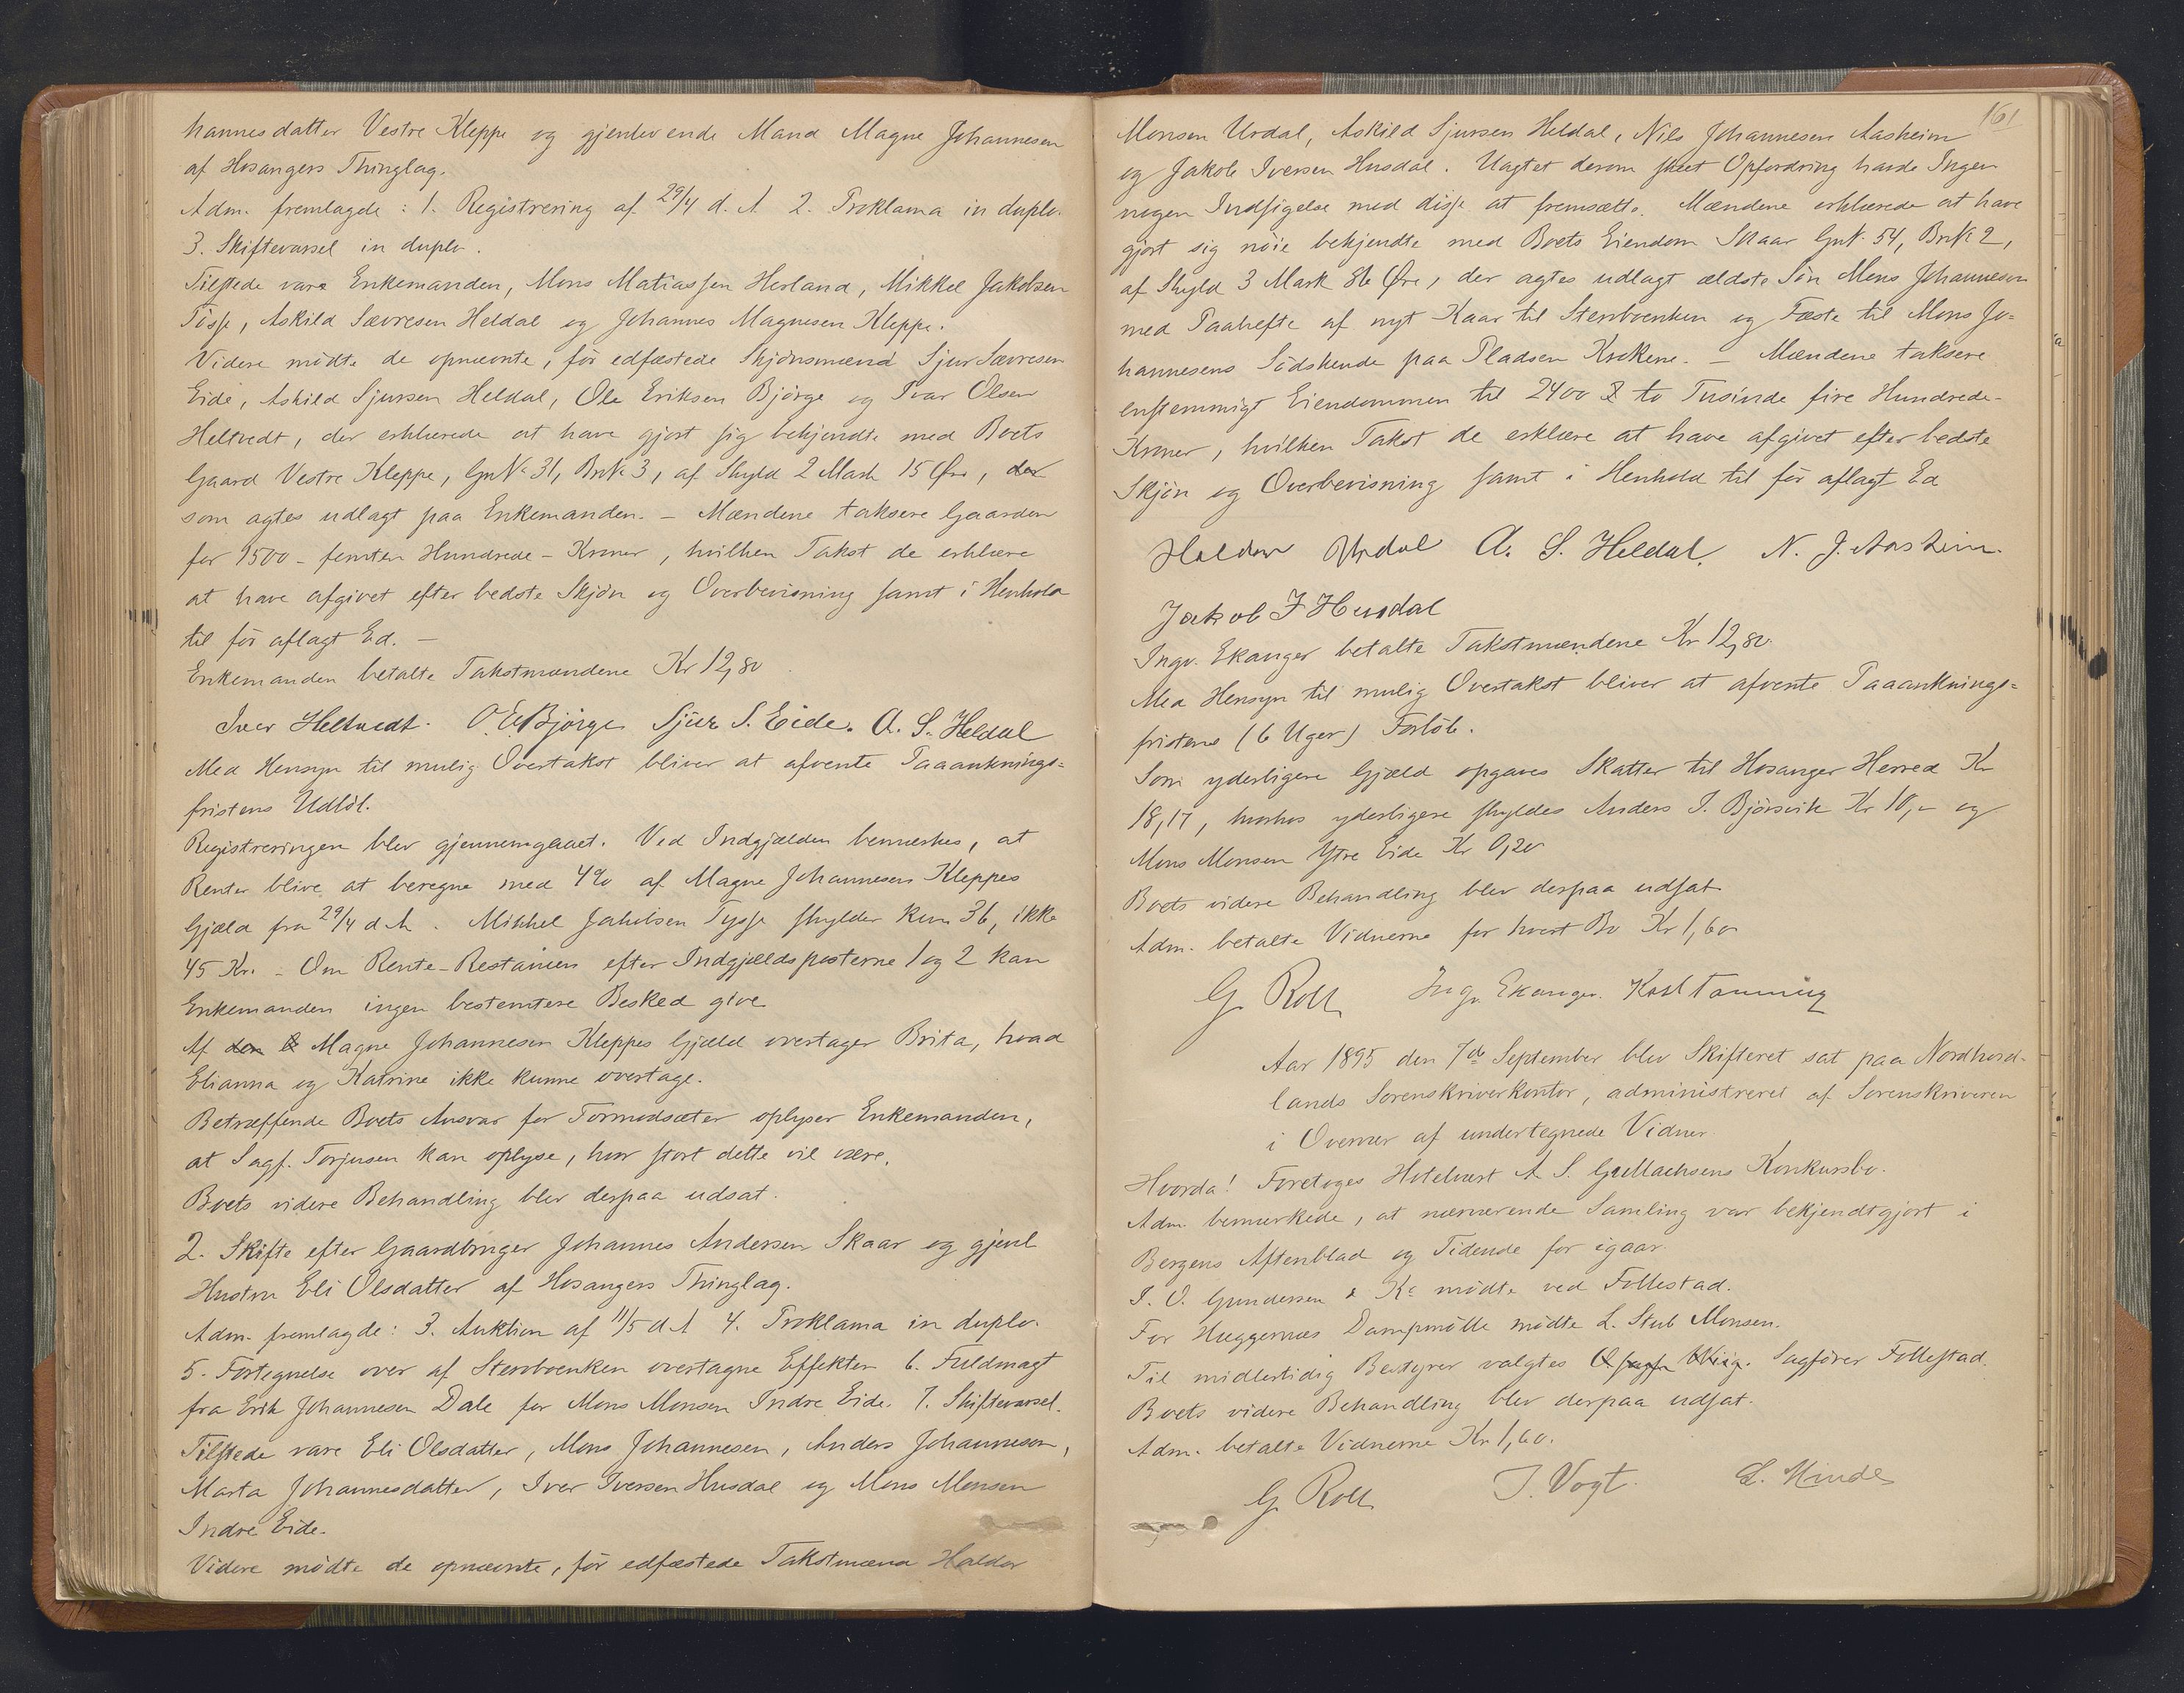 hannesdatter Vestre Kleppe og gjenlevende Mand Magne Johannesen
af Hosangers Thinglag.
Adm. fremlagde: 1. Registrering af 29/4 d. A 2. Proklama in duplo.
3. Skiftevarsel in duplo.
Tilstede vare Enkemanden, Mons Matiassen Herland, Mikkel Jakobsen
Tösse, Askild Sævresen Heldal og Johannes Magnesen Kleppe.
Videre mödte de opnævnte, för edfæstede Skjönsmænd Sjur Sævresen
Eide, Askild Sjursen Heldal, Ole Eriksen Bjørge og Ivar Olsen
Heltvedt, der erklærede at have gjort sig bekjendte med Boets
Gaard Vestre Kleppe, GrN. 31, BrN. 3, af Skyld 2 Mark 15 Øre, der
som agtes udlagt paa Enkemanden. – Mændene taksere Gaarden
for 1500 – femten Hundrede – Kroner, hvilken Takst de erklære
at have afgivet efter bedste Skjön og Overbevisning samt i Henhold
til för aflagt Ed. –
Enkemanden betalte Takstmændene Kr 12,80.
Iver Heltvedt. O. E. Bjørge Sjur S. Eide. A. S. Heldal
Med Hensyn til mulig Overtakst bliver at afvente Paaanknings-
fristens Udlöb.
Registreringen blev gjennemgaaet. Ved Indgjælden bemærkes, at
Renter blive at beregne med 4% af Magne Johannesen Kleppes
Gjæld fra 29/4 d A. Mikkel Jakobsen Tysse skylder kun 36, ikke
45 Kr. – Om Rente-Restancen efter Indgjældsposterne 1 og 2 kan
Enkemanden ingen bestemtere Besked give
Af den Magne Johannesen Kleppes Gjæld overtager Brita, hvad
Elianna og Katrine ikke kunne overtage.
Betræffende Boets Ansvar for Tormodsæter oplyser Enkemanden,
at Sagf. Torjusen kan oplyse, hvor stort dette vil være.
Boets videre Behandling blev derpaa udsat.
2. Skifte efter Gaardbruger Johannes Andersen Skaar og gjenl
Hustru Eli Olsdatter af Hosangers Thinglag.
Adm. fremlagde: 3. Auktion af 11/5 d A 4. Proklama in duplo.
5. Fortegnelse over af Stervboenken overtagne Effekter 6. Fuldmagt
fra Erik Johannesen Dale for Mons Monsen Indre Eide. 7. Skiftevarsel.
Tilstede vare Eli Olsdatter, Mons Johannesen, Anders Johannesen,
Marta Johannesdatter, Iver Iversen Husdal og Mons Monsen
Indre Eide.
Videre mödte de opnævnte, för edfæstede Takstmænd Haldor
161
Monsen Urdal, Askild Sjursen Heldal, Nils Johannesen Aasheim
og Jakob Iversen Husdal. Uagtet derom skeet Opfordring havde Ingen
nogen Indsigelse mod disse at fremsætte. Mændene erklærede at have
gjort sig nöie bekjendte med Boets Eiendom Skaar GrN. 54, BrN 2,
af Skyld 3 Mark 86 Øre, der agtes udlagt ældste Sön Mons Johannesen
med Paahefte af nyt Kaar til Stervboenken og Fæste til Mons Jo-
hannesens Södskende paa Pladsen Krokene. – Mændene taksere
enstemmigt Eiendommen til 2400 to Tusinde fire Hundrede-
Kroner, hvilken Takst de erklære at have afgivet efter bedste
Skjön og Overbevisning samt i Henhold til för aflagt Ed
Haldor Urdal A. S. Heldal. N. J. Aasheim.
Jakob I Husdal
Ingv. Ekanger betalte Takstmændene Kr 12,80.
Med Hensyn til mulig Overtakst bliver at afvente Paaanknings-
fristens (6 Uger) Forlöb.
Som yderligere Gjæld opgaves Skatter til Hosanger Herred Kr
18,17, hvorhos yderligere skyldes Anders I. Björsvik Kr 10,- og
Mons Monsen Ytre Eide Kr 0,20
Boets videre Behandling blev derpaa udsat
Adm. betalte Vidnerne for hvert Bo Kr 1,60
G. Roll Ingv. Ekanger. Karl Tanning
Aar 1895 den 7de September blev Skifteret sat paa Nordhord-
lands Sorenskriverkontor, administreret af Sorenskriveren
i Overvær af undertegnede Vidner.
Hvorda! Foretoges Hotelvært A. S. Gullachsens Konkursbo.
Adm. bemærkede, at nærværende Samling var bekjendtgjort i
Bergens Aftenblad og Tidende for igaar.
I. O. Gundersen & Ko mödte ved Follestad.
For Hæggernæs Dampmölle mödte L. Stub Monsen.
Til midlertidig Bestyrer valgtes O. sagfr Wiig. Sagförer Follestad.
Boets videre Behandling blev derpaa udsat.
Adm. betalte Vidnerne Kr 1,60.
G. Roll J. Vogt. L. Hinde